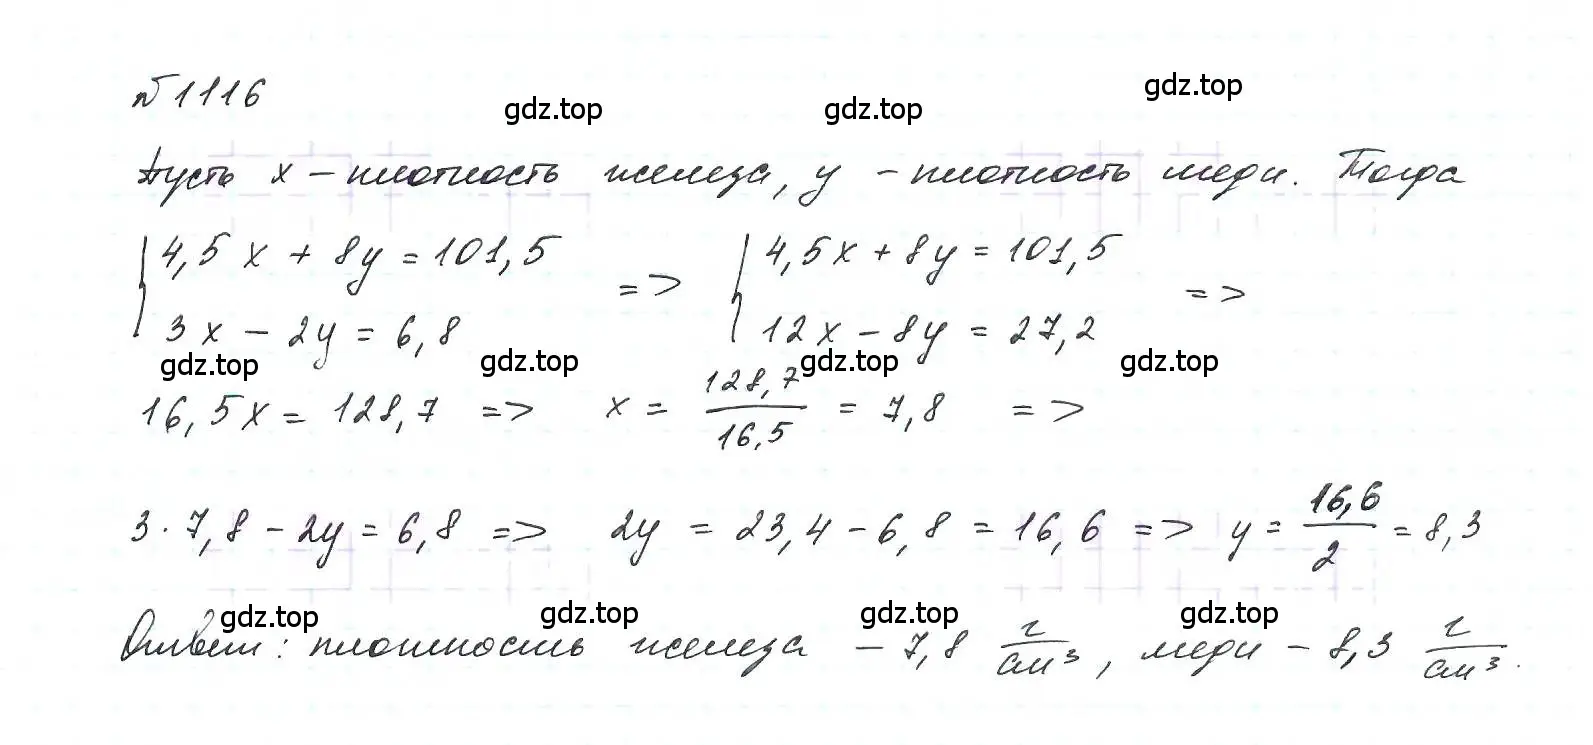 №1116
gdz.top gdz.top gdz.top
Пусть x – плотность железа, y – плотность меди. Тогда
{4,5x + 8y = 101,5 => {4,5x + 8y = 101,5 =>
3x – 2y = 6,8 12x – 8y = 27,2
gdz.top gdz.top gdz.top gdz.top
16,5x = 128,7 => x = 128,7/16,5 = 7,8 =>
3·7,8 – 2y = 6,8 => 2y = 23,4 – 6,8 = 16,6 => y = 16,6/2 = 8,3
gdz.top gdz.top gdz.top gdz.top
Ответ: плотность железа – 7,8 г/см³, меди – 8,3 г/см³.